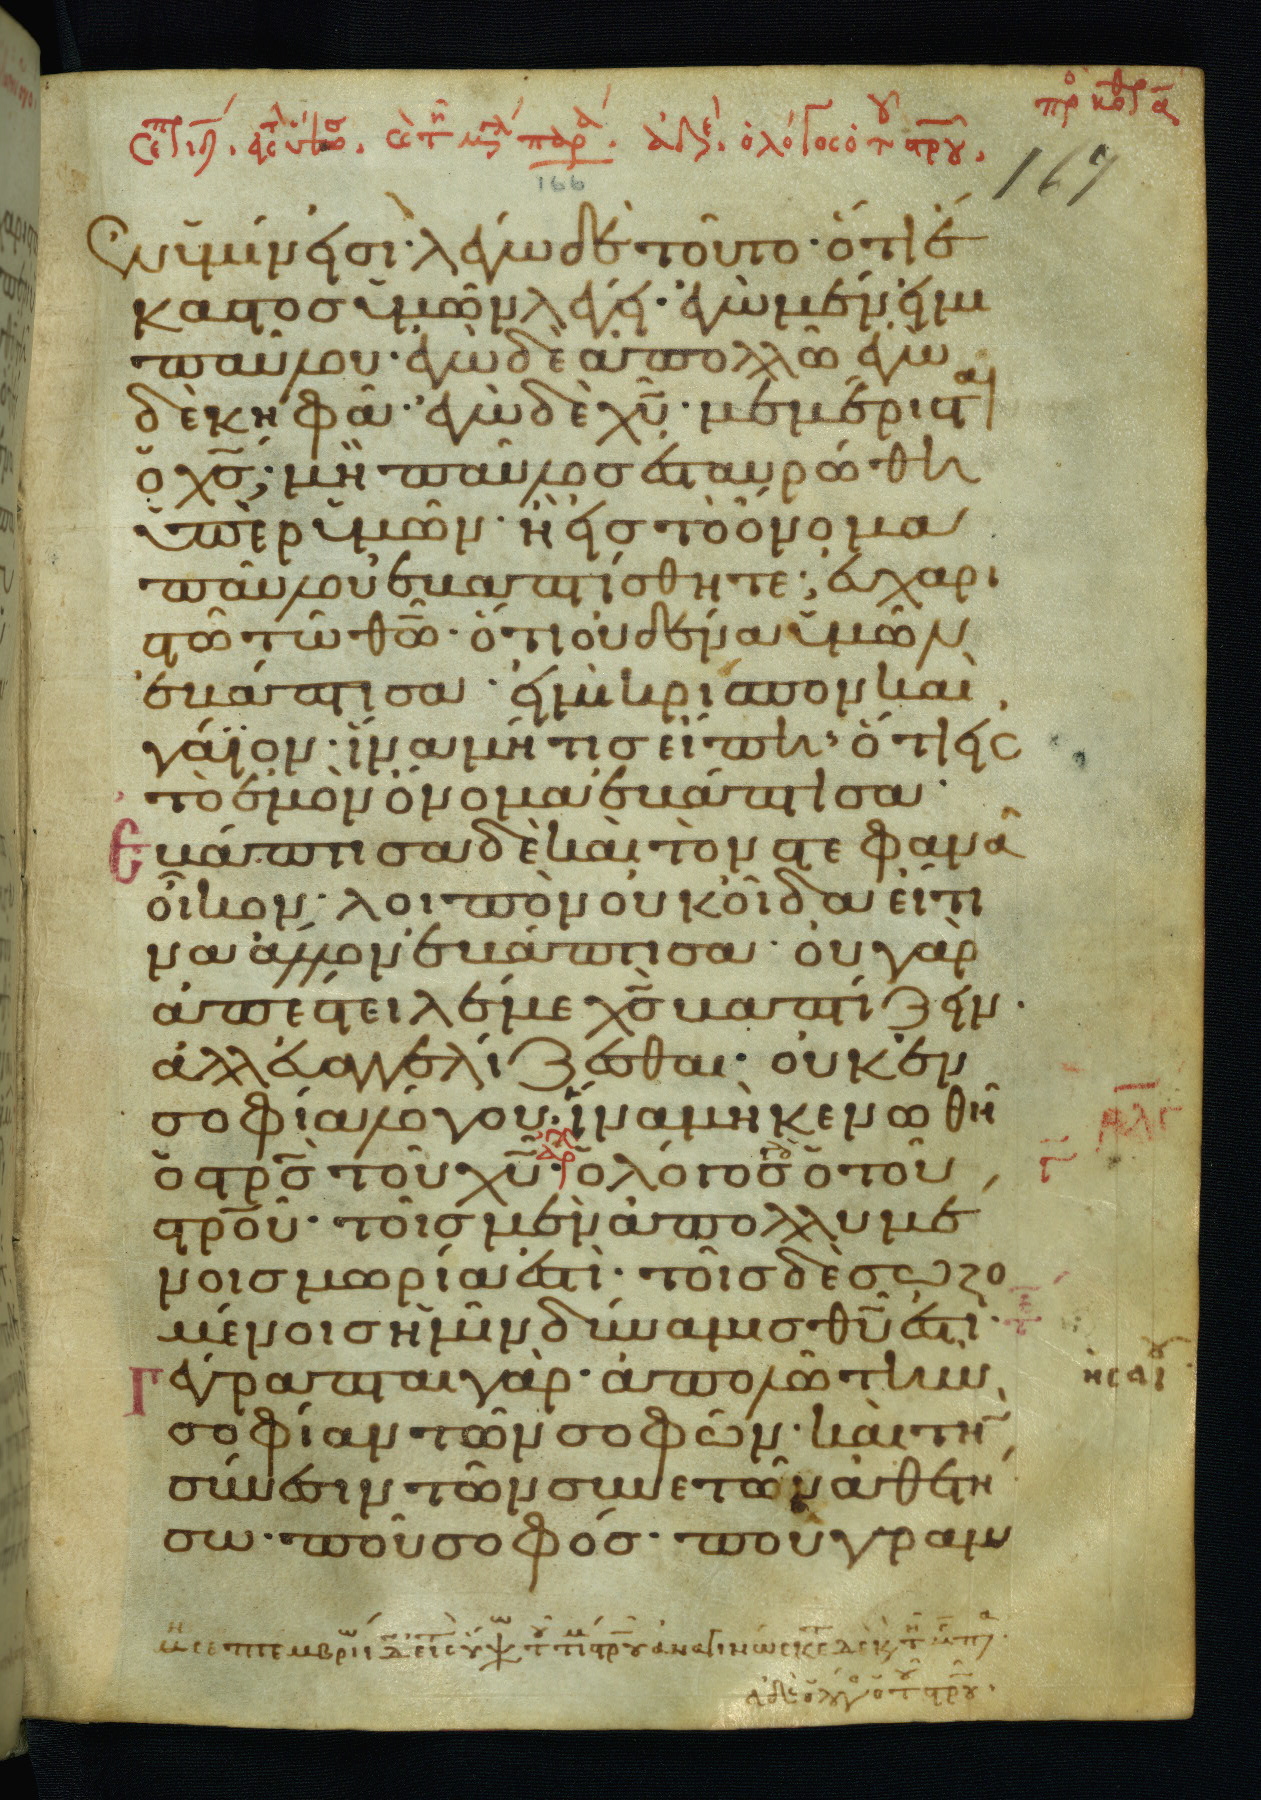 167
166
ἐν ὑμῖν εἰσι· λέγω δὲ τοῦτο· ὅτι ἕ
καστος ὑμῶν λέγει· ἐγὼ μέν εἰμι
παύλου· ἐγὼ δὲ ἀπολλῶ ἐγὼ
δὲ κηφᾶ· ἐγὼ δὲ χ̅υ̅· μεμέρισται
ὁ χ̅ς̅; μὴ παῦλος ἐσταυρώθη
ὑπὲρ ὑμῶν· ἢ εἰς τὸ ὄνομα
παύλου ἐβαπτίσθητε; εὐχαρι
στῶ τῶ θ̅ω̅· ὅτι οὐδένα ὑμῶν
ἐβάπτισα· εἰ μὴ κρίσπον καὶ
γάϊον· ἵνα μή τις εἴπη· ὅτι εἰς
τὸ ἐμὸν ὄνομα ἐβάπτισα·
Ἐβάπτισα δὲ καὶ τὸν στεφανᾶ
οἶκον· λοιπὸν οὐκ οἶδα εἴ τι
να ἄλλον ἐβάπτισα· οὐ γὰρ
ἀπέστειλέ με χ̅ς̅ βαπτίζειν·
ἀλλ' εὐαγγελίζεσθαι· οὐκ ἐν
σοφία λόγου· ἵνα μὴ κενωθῆ
ὁ στρ̅ς̅ τοῦ χ̅υ̅· ὁ λόγος ὁ τοῦ
στρ̅ο̅υ̅· τοῖς μὲν ἀπολλυμέ
νοις μωρία ἐστὶ· τοῖς δὲ σωζο
μένοις ἡμῖν δύναμις θ̅υ̅ ἐστι·
Γέγραπται γάρ· ἀπολῶ τὴν
σοφίαν τῶν σοφῶν· καὶ τὴν
σύνεσιν τῶν συνετῶν ἀθετή
σω· ποῦ σοφός· ποῦ γραμ